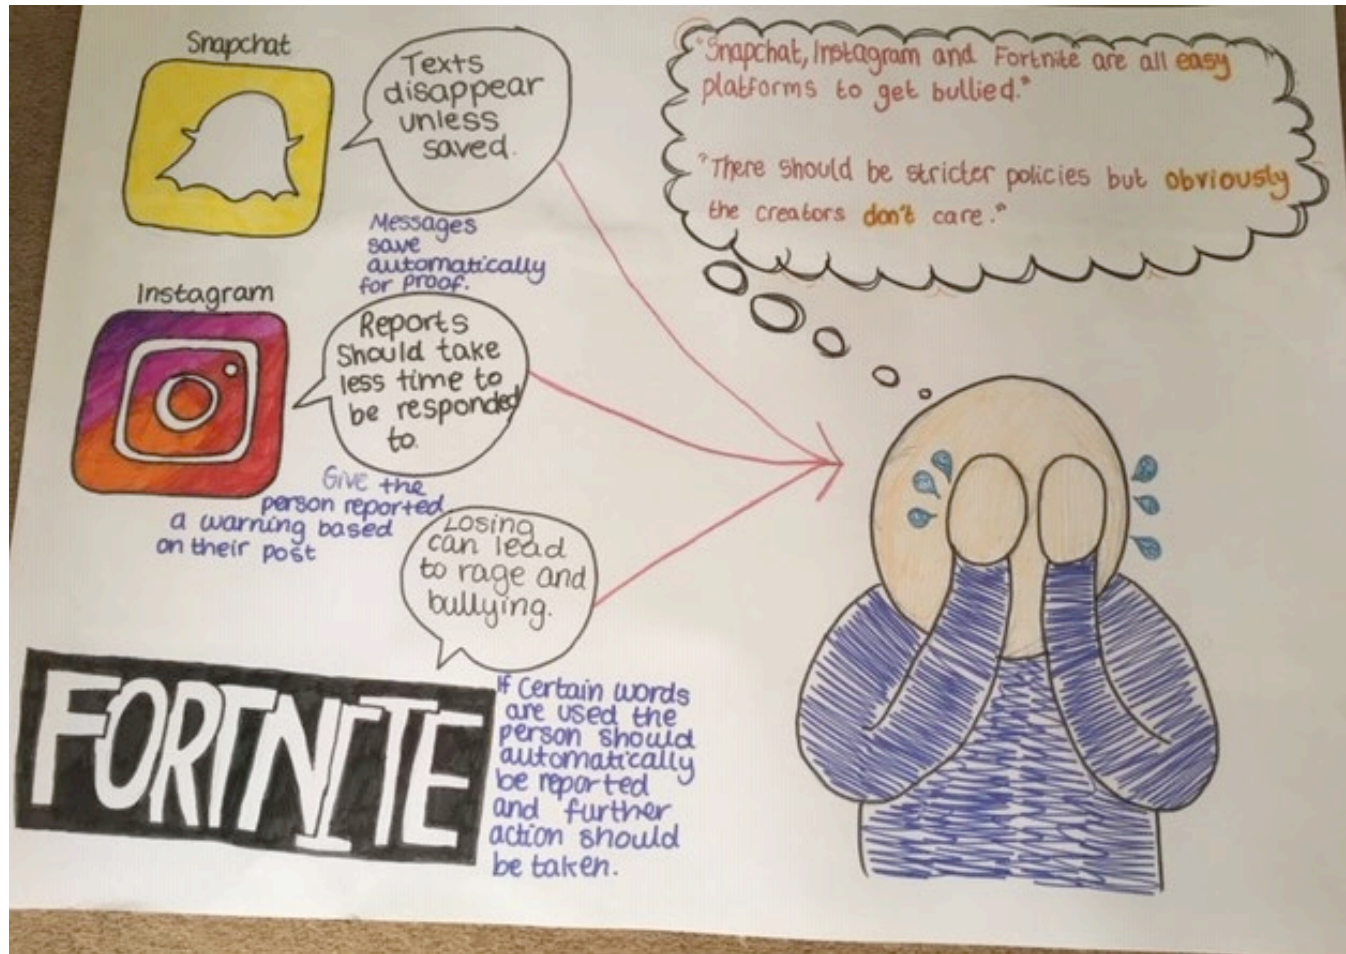 Snapchat
Texts
disappear
unless
saved.
Messages
save
automatically
for proof.
Instagram
Reports
Should take
less time to
be responded
to.
Give the
person reported
a warning based
on their post
Losing
can lead
to rage and
bullying.
FORTNITE
If Certain words
are used the
person should
automatically
be reported
and further
action should
be taken.
"Snapchat, Instagram and Fortnite are all easy
platforms to get bullied."
"There should be stricter policies but obviously
the creators don't care."